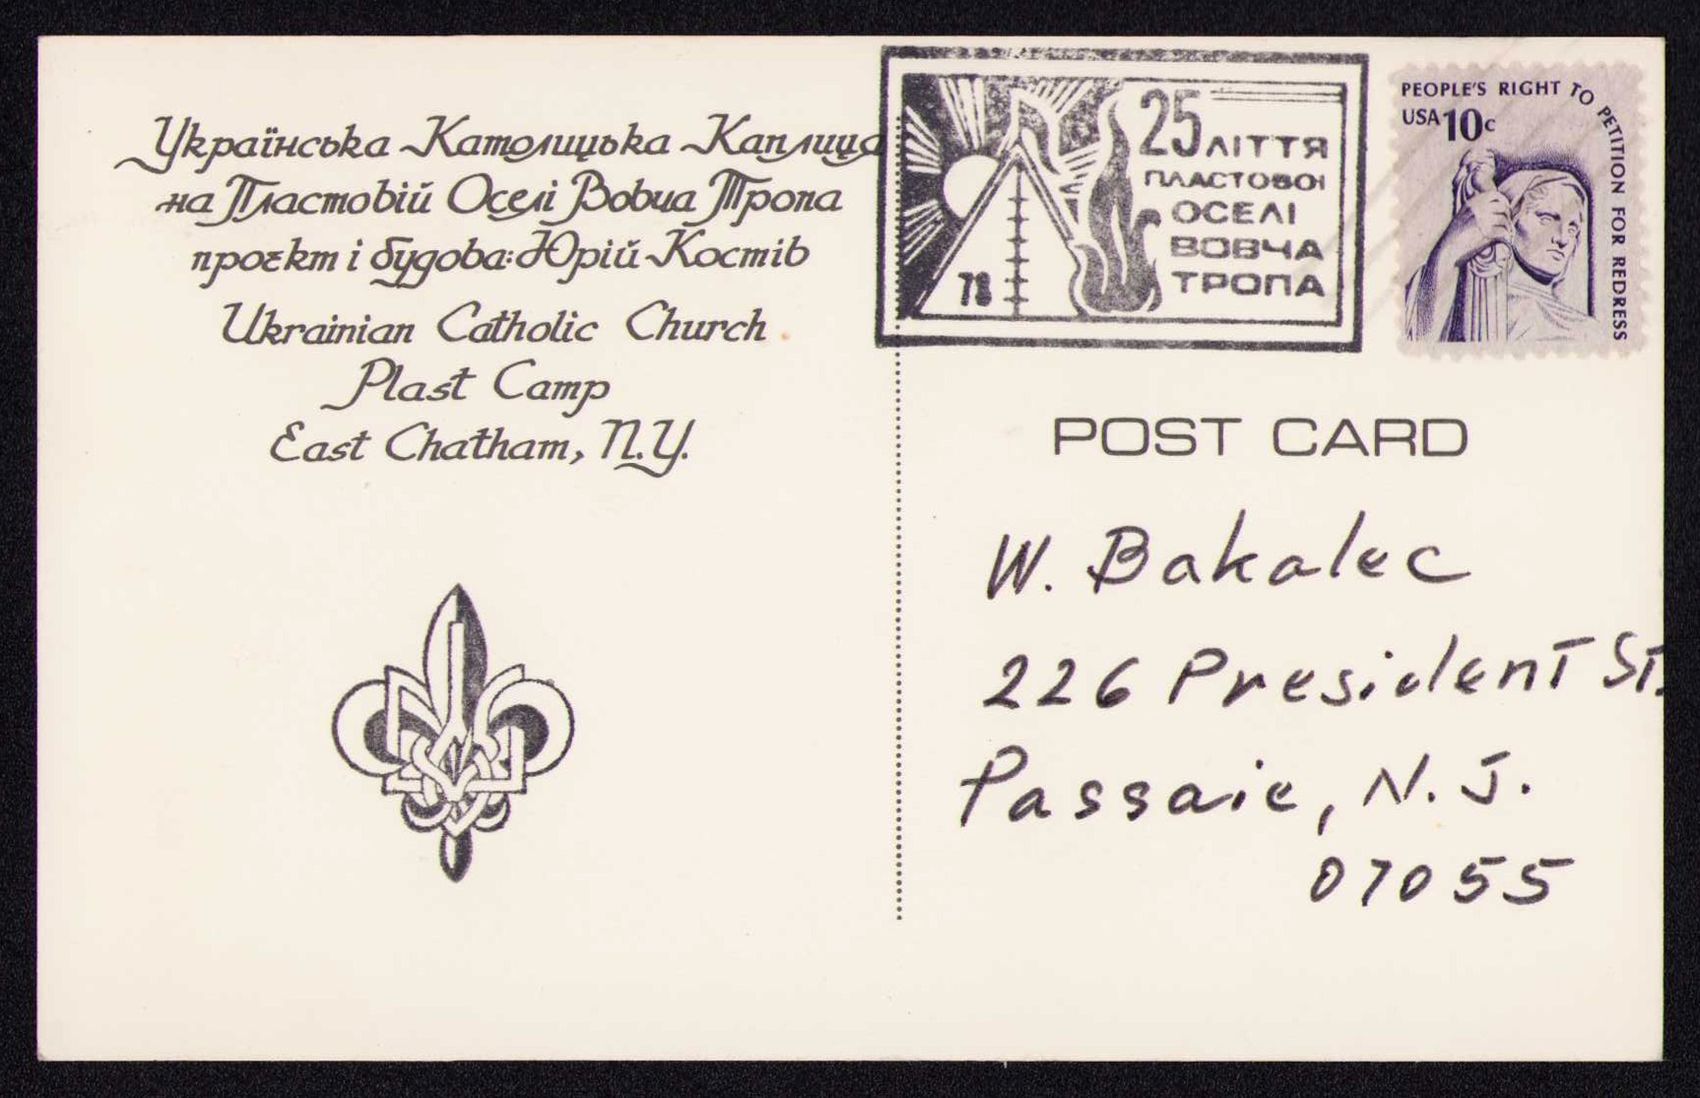 Українська Католицька Каплиця
на Пластовій Оселі Вовча Тропа
проєкт і будова: Юрій Костів
Ukrainian Catholic Church
Plast Camp
East Chatham, N.Y.
25 ЛІТТЯ
ПЛАСТОВОЇ
ОСЕЛІ
ВОВЧА
ТРОПА
78
PEOPLE'S RIGHT TO PETITION FOR REDRESS
USA 10c
POST CARD
W. Bakalec
226 President St.
Passaic, N.J.
07055